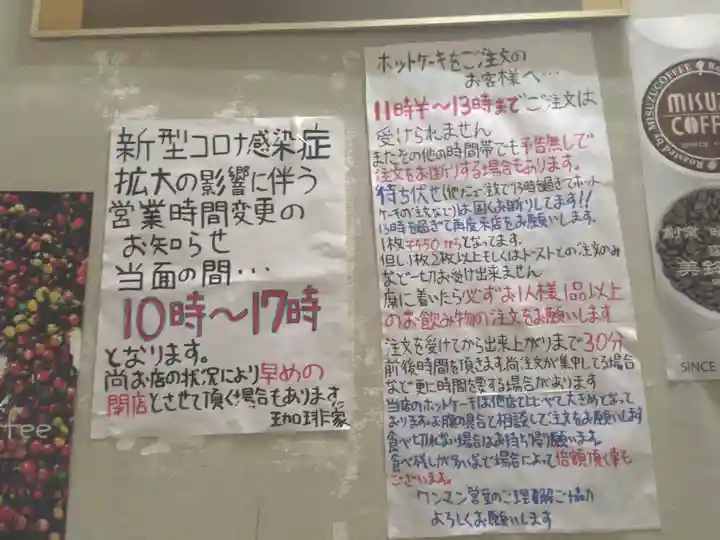 新型コロナ感染症
拡大の影響に伴う
営業時間変更の
お知らせ
当面の間…
10時〜17時
となります。
尚お店の状況により早めの
閉店とさせて頂く場合もあります。
珈琲家
ホットケーキをご注文の
お客様へ…
11時半〜13時までご注文は
受けられません
またその他の時間帯でも予告無しで
注文をお断りする場合もあります。
待ち伏せ(他メニュー注文で13時を過ぎてホット
ケーキの注文など)は固くお断りしてます!!
13時を過ぎて再度来店をお願いします。
1枚¥450からとなってます。
但し1枚2枚以上もしくはトーストとの注文のみ
など一切お受け出来ません
席に着いたら必ずお1人様1品以上
のお飲み物の注文をお願いします
注文を受けてから出来上がりまで30分
前後時間を頂きます。尚注文が集中してる場合
など更に時間を要する場合があります
当店のホットケーキは他店と比べて大きめとなって
おります。お腹の具合と相談して注文をお願いします
食べ切れない場合はお持ち帰り願います。
食べ残しが多いなど場合によって倍額頂く事も
ございます。
ワンマン営業のご理解ご協力
よろしくお願いします
Roasted by MISUZUCOFFEE
MISUZ
COFF
SINCE
創業
美鈴
SINCE
ffee